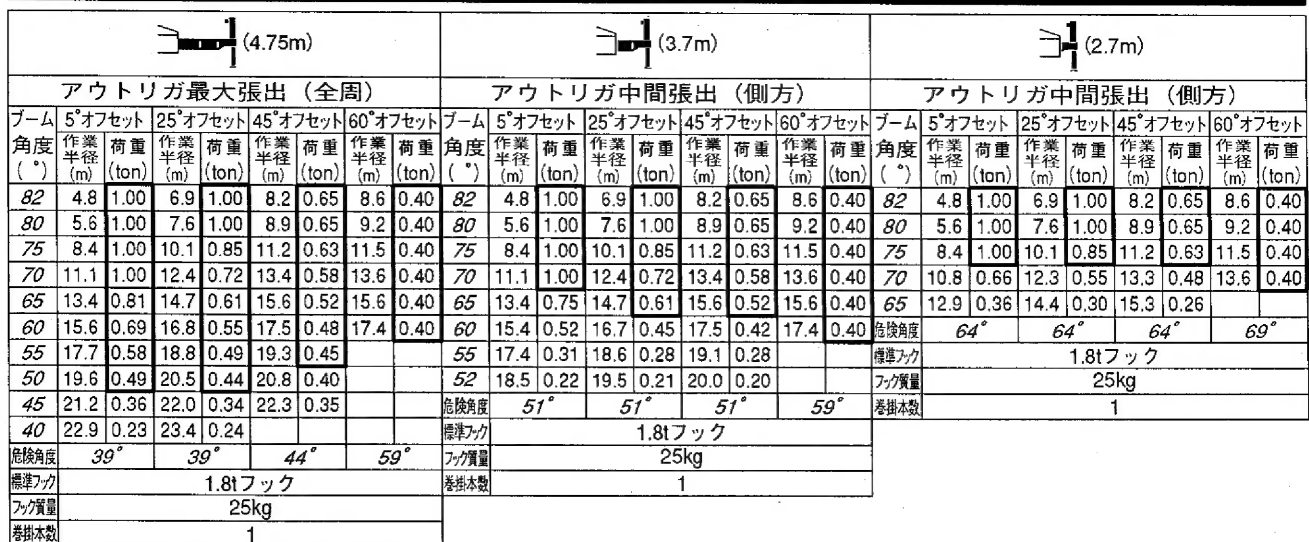 (4.75m)
アウトリガ最大張出(全周)
ブーム角度(°) 5°オフセット 25°オフセット 45°オフセット 60°オフセット
作業半径(m) 荷重(ton) 作業半径(m) 荷重(ton) 作業半径(m) 荷重(ton) 作業半径(m) 荷重(ton)
82 4.8 1.00 6.9 1.00 8.2 0.65 8.6 0.40
80 5.6 1.00 7.6 1.00 8.9 0.65 9.2 0.40
75 8.4 1.00 10.1 0.85 11.2 0.63 11.5 0.40
70 11.1 1.00 12.4 0.72 13.4 0.58 13.6 0.40
65 13.4 0.81 14.7 0.61 15.6 0.52 15.6 0.40
60 15.6 0.69 16.8 0.55 17.5 0.48 17.4 0.40
55 17.7 0.58 18.8 0.49 19.3 0.45
50 19.6 0.49 20.5 0.44 20.8 0.40
45 21.2 0.36 22.0 0.34 22.3 0.35
40 22.9 0.23 23.4 0.24
危険角度 39° 39° 44° 59°
標準フック 1.8tフック
フック質量 25kg
巻掛本数 1
(3.7m)
アウトリガ中間張出(側方)
ブーム角度(°) 5°オフセット 25°オフセット 45°オフセット 60°オフセット
作業半径(m) 荷重(ton) 作業半径(m) 荷重(ton) 作業半径(m) 荷重(ton) 作業半径(m) 荷重(ton)
82 4.8 1.00 6.9 1.00 8.2 0.65 8.6 0.40
80 5.6 1.00 7.6 1.00 8.9 0.65 9.2 0.40
75 8.4 1.00 10.1 0.85 11.2 0.63 11.5 0.40
70 11.1 1.00 12.4 0.72 13.4 0.58 13.6 0.40
65 13.4 0.75 14.7 0.61 15.6 0.52 15.6 0.40
60 15.4 0.52 16.7 0.45 17.5 0.42 17.4 0.40
55 17.4 0.31 18.6 0.28 19.1 0.28
52 18.5 0.22 19.5 0.21 20.0 0.20
危険角度 51° 51° 51° 59°
標準フック 1.8tフック
フック質量 25kg
巻掛本数 1
(2.7m)
アウトリガ中間張出(側方)
ブーム角度(°) 5°オフセット 25°オフセット 45°オフセット 60°オフセット
作業半径(m) 荷重(ton) 作業半径(m) 荷重(ton) 作業半径(m) 荷重(ton) 作業半径(m) 荷重(ton)
82 4.8 1.00 6.9 1.00 8.2 0.65 8.6 0.40
80 5.6 1.00 7.6 1.00 8.9 0.65 9.2 0.40
75 8.4 1.00 10.1 0.85 11.2 0.63 11.5 0.40
70 10.8 0.66 12.3 0.55 13.3 0.48 13.6 0.40
65 12.9 0.36 14.4 0.30 15.3 0.26
危険角度 64° 64° 64° 69°
標準フック 1.8tフック
フック質量 25kg
巻掛本数 1